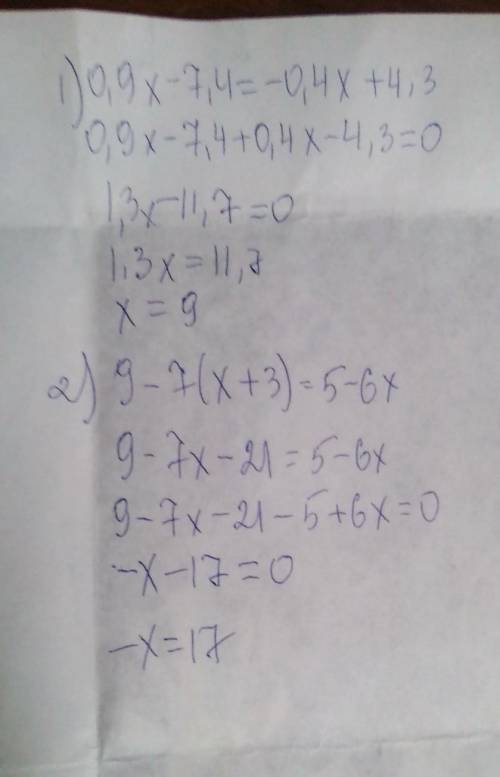 1) 0,9x-7,4=-0,4x+4,3
0,9x-7,4+0,4x-4,3=0
1,3x-11,7=0
1,3x=11,7
x=9
2) 9-7(x+3)=5-6x
9-7x-21=5-6x
9-7x-21-5+6x=0
-x-17=0
-x=17